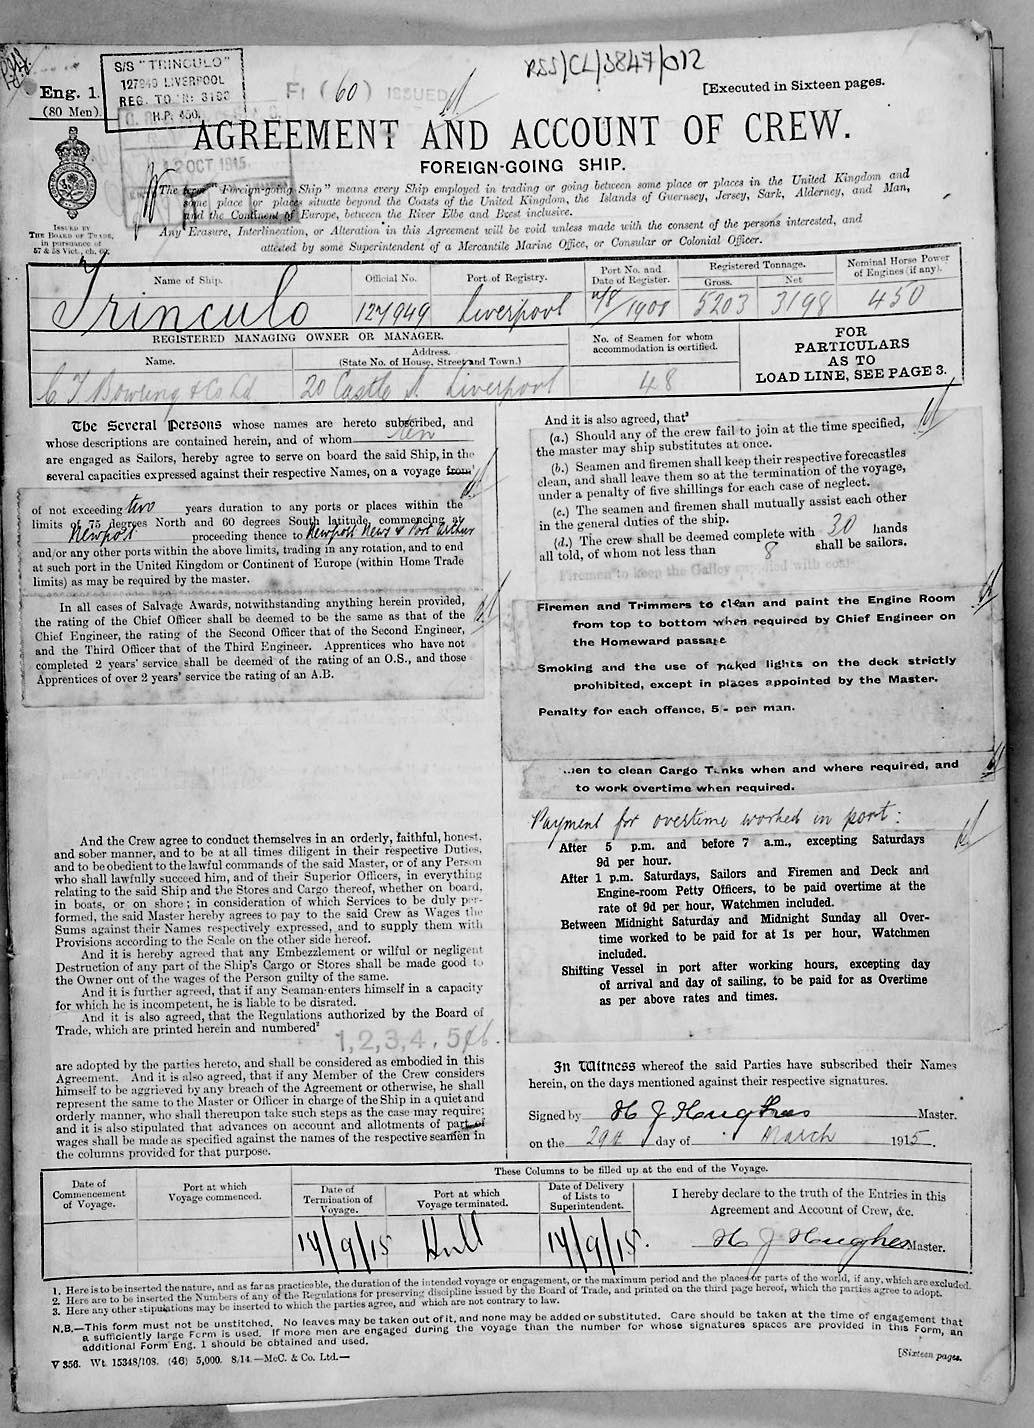 RSS/CL/3847/012
S/S "TRINCULO"
127949 LIVERPOOL
REG. TON: 3198
H.P. 450.
FI (60) ISSUED
[Executed in Sixteen pages.
Eng. 1.
(80 Men).
AGREEMENT AND ACCOUNT OF CREW.
FOREIGN-GOING SHIP.
12 OCT 1915
The term "Foreign-going Ship" means every Ship employed in trading or going between some place or places in the United Kingdom and
some place or places situate beyond the Coasts of the United Kingdom, the Islands of Guernsey, Jersey, Sark, Alderney, and Man,
and the Continent of Europe, between the River Elbe and Brest inclusive.
Any Erasure, Interlineation, or Alteration in this Agreement will be void unless made with the consent of the persons interested, and
attested by some Superintendent of a Mercantile Marine Office, or Consular or Colonial Officer.
ISSUED BY
THE BOARD OF TRADE,
in pursuance of
57 & 58 Vict., ch. 60.
Name of Ship. Official No. Port of Registry. Port No. and Date of Register. Registered Tonnage. Gross. Net Nominal Horse Power of Engines (if any).
Trinculo 127949 Liverpool 1908 5203 3198 450
REGISTERED MANAGING OWNER OR MANAGER.
Name. Address. (State No. of House, Street and Town.)
No. of Seamen for whom accommodation is certified.
C T Bowring & Co Ld 20 Castle St. Liverpool 48
FOR
PARTICULARS
AS TO
LOAD LINE, SEE PAGE 3.
The Several Persons whose names are hereto subscribed, and
whose descriptions are contained herein, and of whom ten
are engaged as Sailors, hereby agree to serve on board the said Ship, in the
several capacities expressed against their respective Names, on a voyage from
of not exceeding two years duration to any ports or places within the
limits of 75 degrees North and 60 degrees South latitude, commencing at
Newport proceeding thence to Newport News & Port Arthur
and/or any other ports within the above limits, trading in any rotation, and to end
at such port in the United Kingdom or Continent of Europe (within Home Trade
limits) as may be required by the master.
In all cases of Salvage Awards, notwithstanding anything herein provided,
the rating of the Chief Officer shall be deemed to be the same as that of the
Chief Engineer, the rating of the Second Officer that of the Second Engineer,
and the Third Officer that of the Third Engineer. Apprentices who have not
completed 2 years' service shall be deemed of the rating of an O.S., and those
Apprentices of over 2 years' service the rating of an A.B.
And the Crew agree to conduct themselves in an orderly, faithful, honest,
and sober manner, and to be at all times diligent in their respective Duties,
and to be obedient to the lawful commands of the said Master, or of any Person
who shall lawfully succeed him, and of their Superior Officers, in everything
relating to the said Ship and the Stores and Cargo thereof, whether on board,
in boats, or on shore; in consideration of which Services to be duly per-
formed, the said Master hereby agrees to pay to the said Crew as Wages the
Sums against their Names respectively expressed, and to supply them with
Provisions according to the Scale on the other side hereof.
And it is hereby agreed that any Embezzlement or wilful or negligent
Destruction of any part of the Ship's Cargo or Stores shall be made good to
the Owner out of the wages of the Person guilty of the same.
And it is further agreed, that if any Seaman enters himself in a capacity
for which he is incompetent, he is liable to be disrated.
And it is also agreed, that the Regulations authorized by the Board of
Trade, which are printed herein and numbered²
1, 2, 3, 4, 5 & 6.
are adopted by the parties hereto, and shall be considered as embodied in this
Agreement. And it is also agreed, that if any Member of the Crew considers
himself to be aggrieved by any breach of the Agreement or otherwise, he shall
represent the same to the Master or Officer in charge of the Ship in a quiet and
orderly manner, who shall thereupon take such steps as the case may require;
and it is also stipulated that advances on account and allotments of part of
wages shall be made as specified against the names of the respective seamen in
the columns provided for that purpose.
And it is also agreed, that³
(a.) Should any of the crew fail to join at the time specified,
the master may ship substitutes at once.
(b.) Seamen and firemen shall keep their respective forecastles
clean, and shall leave them so at the termination of the voyage,
under a penalty of five shillings for each case of neglect.
(c.) The seamen and firemen shall mutually assist each other
in the general duties of the ship.
(d.) The crew shall be deemed complete with 30 hands
all told, of whom not less than 8 shall be sailors.
Firemen to keep the Galley supplied with coal
Firemen and Trimmers to clean and paint the Engine Room
from top to bottom when required by Chief Engineer on
the Homeward passage
Smoking and the use of naked lights on the deck strictly
prohibited, except in places appointed by the Master.
Penalty for each offence, 5/- per man.
Men to clean Cargo Tanks when and where required, and
to work overtime when required.
Payment for overtime worked in port:
After 5 p.m. and before 7 a.m., excepting Saturdays
9d per hour.
After 1 p.m. Saturdays, Sailors and Firemen and Deck and
Engine-room Petty Officers, to be paid overtime at the
rate of 9d per hour, Watchmen included.
Between Midnight Saturday and Midnight Sunday all Over-
time worked to be paid for at 1s per hour, Watchmen
included.
Shifting Vessel in port after working hours, excepting day
of arrival and day of sailing, to be paid for as Overtime
as per above rates and times.
In Witness whereof the said Parties have subscribed their Names
herein, on the days mentioned against their respective signatures.
Signed by H J Haughes Master.
on the 29th day of March 1915.
These Columns to be filled up at the end of the Voyage.
Date of Commencement of Voyage. Port at which Voyage commenced. Date of Termination of Voyage. Port at which Voyage terminated. Date of Delivery of Lists to Superintendent.
I hereby declare to the truth of the Entries in this
Agreement and Account of Crew, &c.
14/9/15 Hull 14/9/15. H J Haughes Master.
1. Here is to be inserted the nature, and as far as practicable, the duration of the intended voyage or engagement, or the maximum period and the places or parts of the world, if any, which are excluded.
2. Here are to be inserted the Numbers of any of the Regulations for preserving discipline issued by the Board of Trade, and printed on the third page hereof, which the parties agree to adopt.
3. Here any other stipulations may be inserted to which the parties agree, and which are not contrary to law.
N.B.—This form must not be unstitched. No leaves may be taken out of it, and none may be added or substituted. Care should be taken at the time of engagement that
a sufficiently large Form is used. If more men are engaged during the voyage than the number for whose signatures spaces are provided in this Form, an
additional Form Eng. 1 should be obtained and used.
V 356. Wt. 15348/108. (46) 5,000. 8/14.—McC. & Co. Ltd.—
[Sixteen pages.